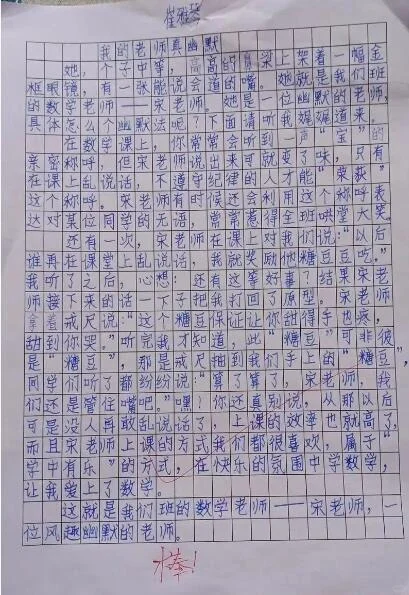 崔雅琴
我的老师真幽默
她，个子中等，高高的鼻梁上架着一幅金
框眼镜，有一张能说会道的嘴。她就是我们班
的数学老师——宋老师。她是一位幽默的老师，
具体怎么个幽默法呢？下面请听我娓娓道来。
在数学课上，你常常会听到一声“宝”的
亲密称呼，但宋老师说出来可就变了味，只有
在课上乱说话，不遵守纪律的人才能“荣获”
这个称呼。宋老师有时候还会利用这个称呼表
达对某位同学的无语，常常惹得全班哄堂大笑。
还有一次，宋老师在课上对我们说：“以后
谁再在课堂上乱说话，我就奖励他糖豆豆吃。”
我听了之后，心想：还有这等好事？结果宋老
师接下来的话一下子把我打回了原型。宋老师
拿着戒尺说：“这个糖豆保证让你甜得手也疼，
甜到你哭。”听完我才知道，此“糖豆”可非彼
是“糖豆”，那是戒尺抽到我们手上的“糖豆”，
同学们听了都纷纷说：“算了算了，宋老师，我
们还是管住嘴吧。”嘿？你还真别说，从那以后
可是没人再敢乱说话了，上课的效率也就高了，
而且宋老师上课的方式我们都很喜欢，属于“
学中有乐”的方式，在快乐的氛围中学数学，
让我爱上了数学。
这就是我们班的数学老师——宋老师，一
位风趣幽默的老师。
棒！